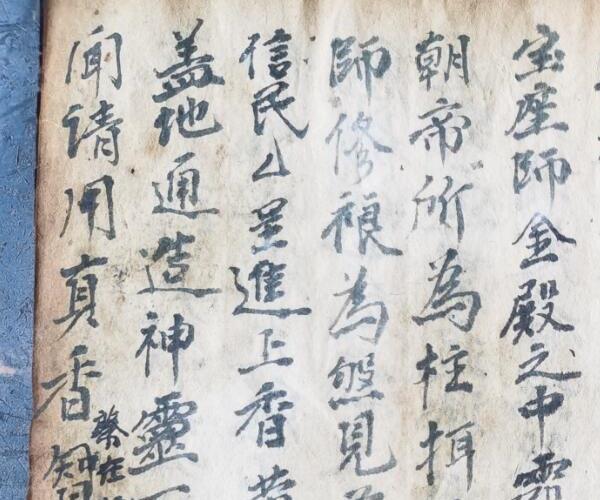 宝座師金殿之中霄
朝帝所為柱拝
師修為盤見
信民厶呈進上香
盖地通造神靈一
聞請用真香